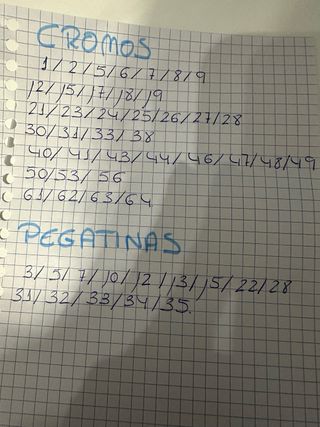 CROMOS
1/2/5/6/7/8/9
12/15/17/18/19
21/23/24/25/26/27/28
30/31/33/38
40/41/43/44/46/47/48/49
50/53/56
61/62/63/64
PEGATINAS
3/5/7/10/12/13/15/22/28
31/32/33/34/35.